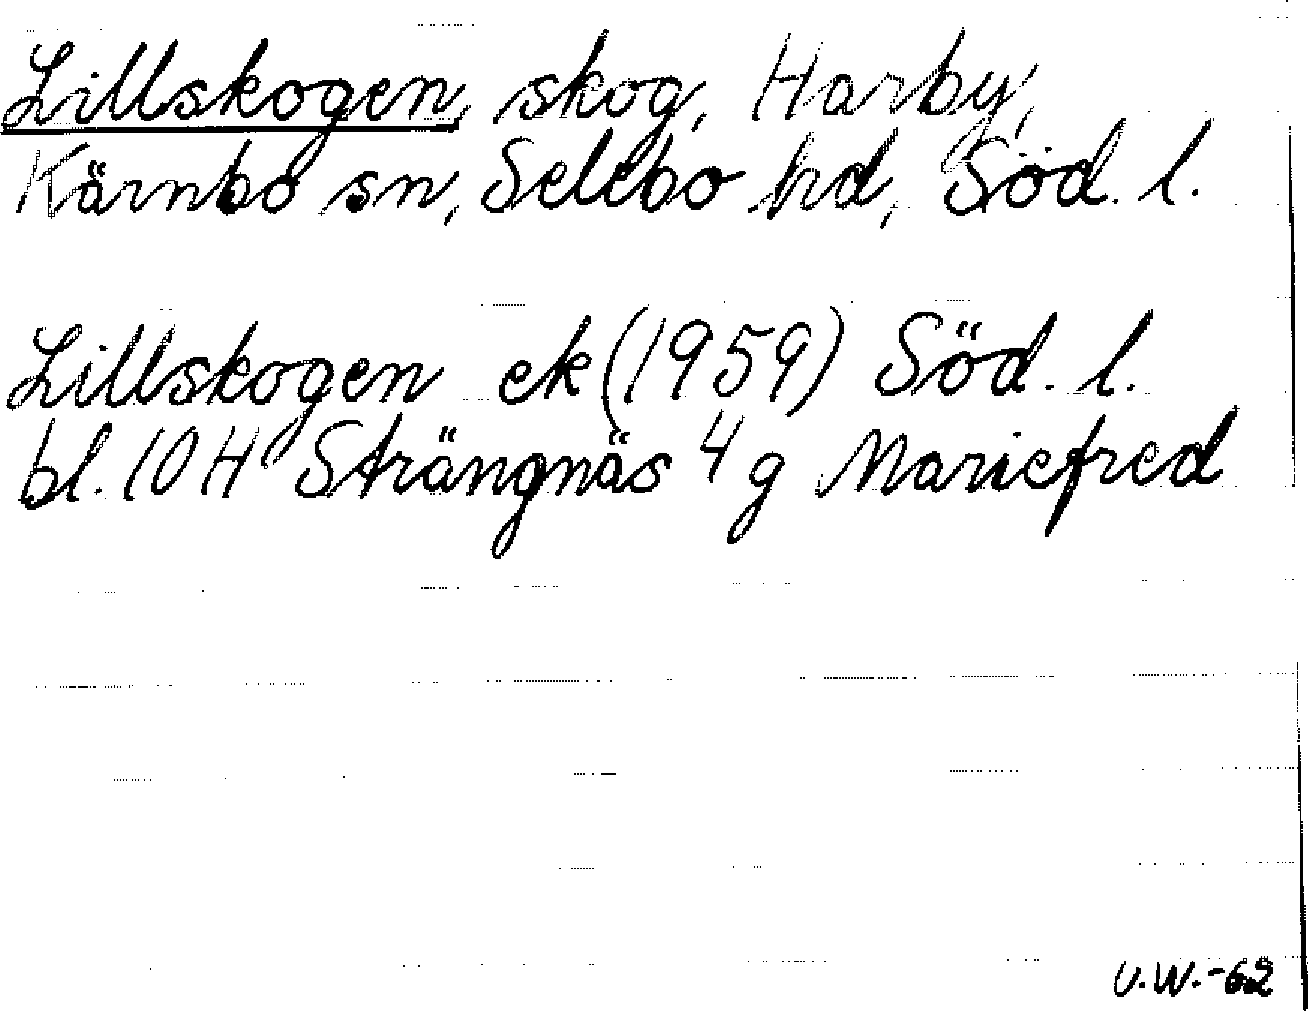 Lillskogen, skog, Harby,
Kärnbo sn, Selebo hd, Söd. l.
Lillskogen ek (1959) Söd. l.
bl. 10 H Strängnäs 4 g Mariefred
U.W.-62